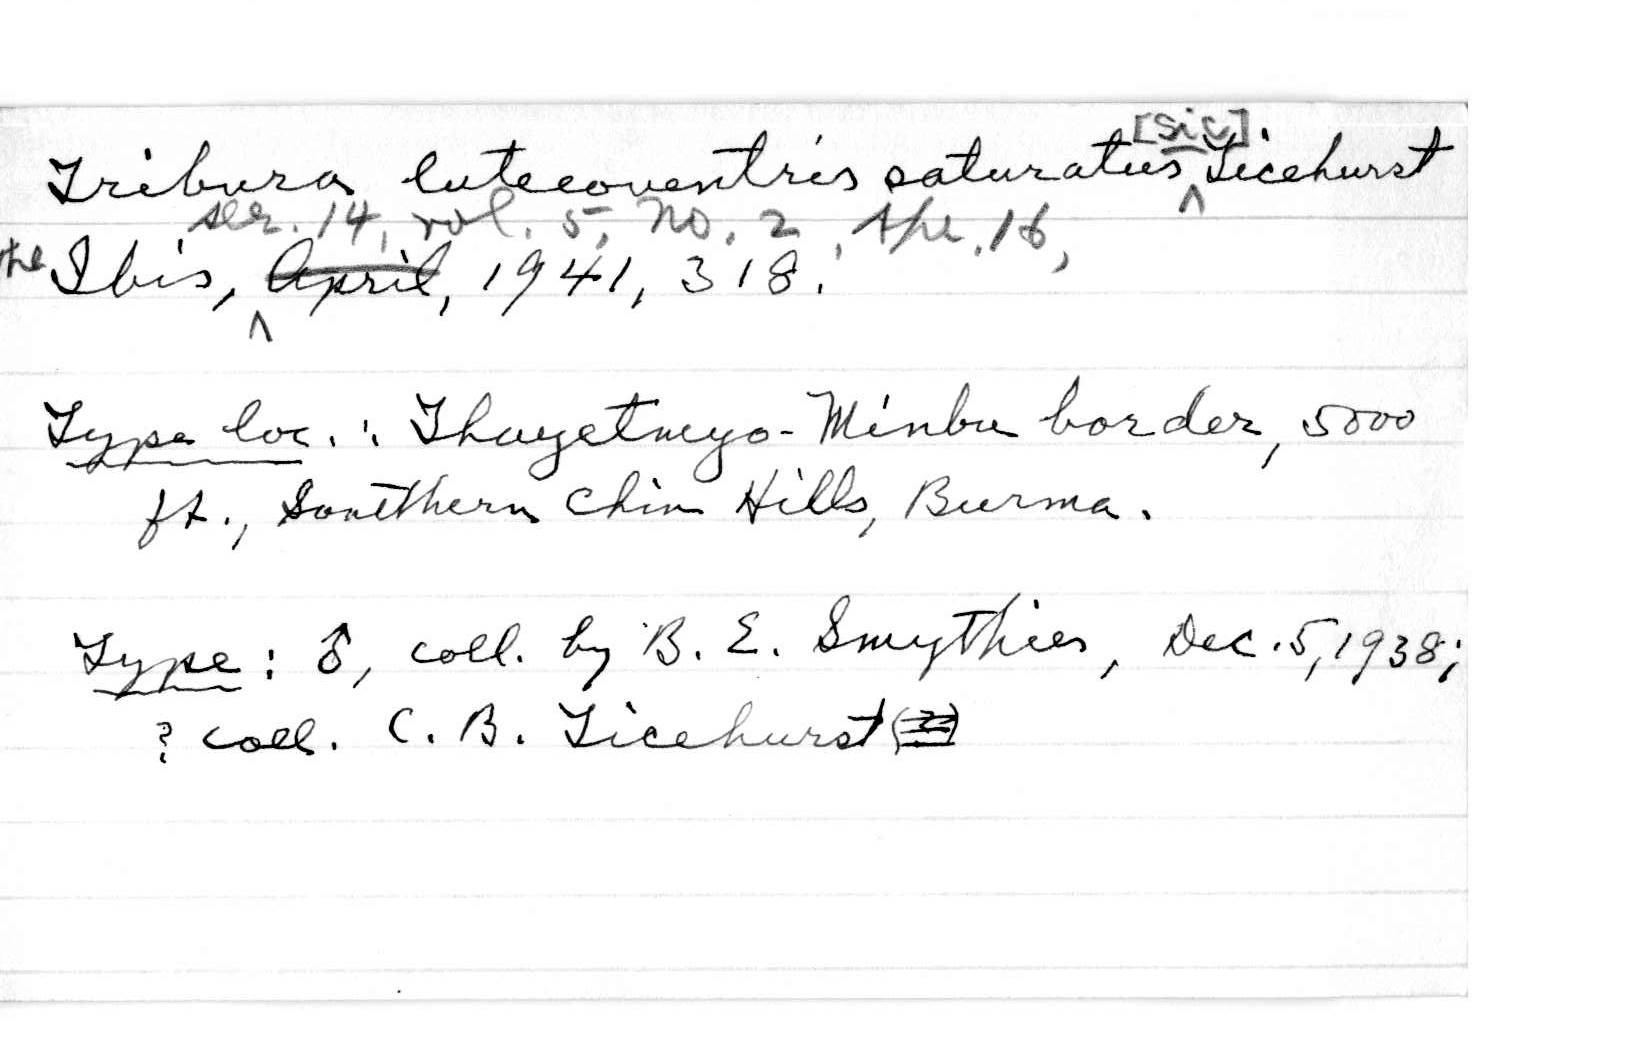 Tribura luteoventris saturatus [sic]. Ticehurst
ser. 14, vol. 5, No. 2, Apr. 16,
the Ibis, April, 1941, 318.
Type loc.: Thayetmyo-Minbu border, 5000
ft., Southern Chin Hills, Burma.
Type: ♂, coll. by B. E. Smythies, Dec. 5, 1938;
? coll. C. B. Ticehurst